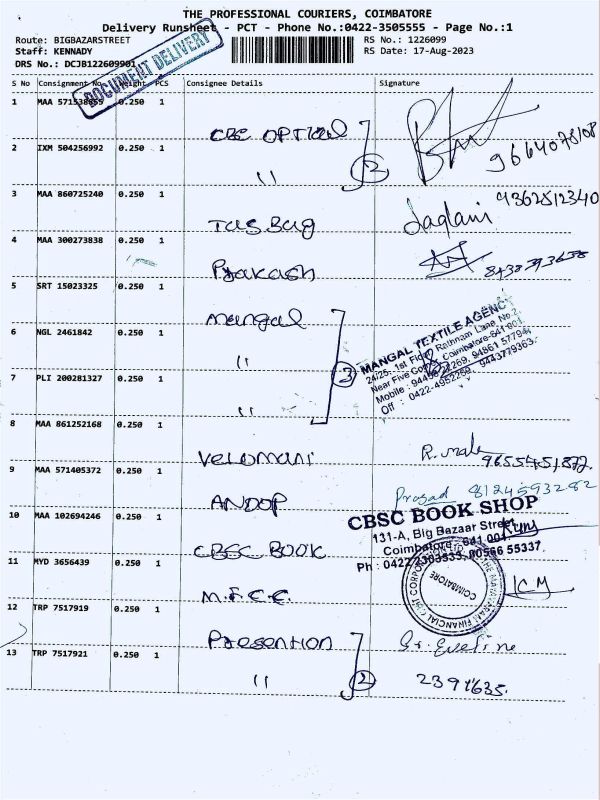 THE PROFESSIONAL COURIERS, COIMBATORE
Delivery Runsheet - PCT - Phone No.:0422-3505555 - Page No.:1
Route: BIGBAZARSTREET
RS No.: 1226099
Staff: KENNADY
RS Date: 17-Aug-2023
DRS No.: DCJB122609901
DOCUMENT DELIVERY
S No Consignment No. Weight PCS Consignee Details Signature
1 MAA 571538855 0.250 1
CBE OPTICAL
9664078108
2 IXM 504256992 0.250 1
"
2
3 MAA 860725240 0.250 1
9362512340
Tas Bag
Jaglani
4 MAA 300273838 0.250 1
Prakash
5 SRT 15023325 0.250 1
Mangal
MANGAL TEXTILE AGENCY
24/25, 1st Floor, Rathnam Lane, No.2,
Near Five Corner, Coimbatore-641 001.
Off : 0422-4952269, 9443779363.
6 NGL 2461842 0.250 1
"
3
7 PLI 200281327 0.250 1
"
8 MAA 861252168 0.250 1
Velumani
R. Mala
9655451872
9 MAA 571405372 0.250 1
ANDOP
Prasad 8124593282
10 MAA 102694246 0.250 1
CBSC BOOK
CBSC BOOK SHOP
131-A, Big Bazaar Street,
Coimbatore - 641 001.
Ph : 0422 2303533, 90566 55337
11 MYD 3656439 0.250 1
M.F.C.C.
COIMBATORE
12 TRP 7517919 0.250 1
Presention
Sr. Eveline
13 TRP 7517921 0.250 1
"
2
2391635.